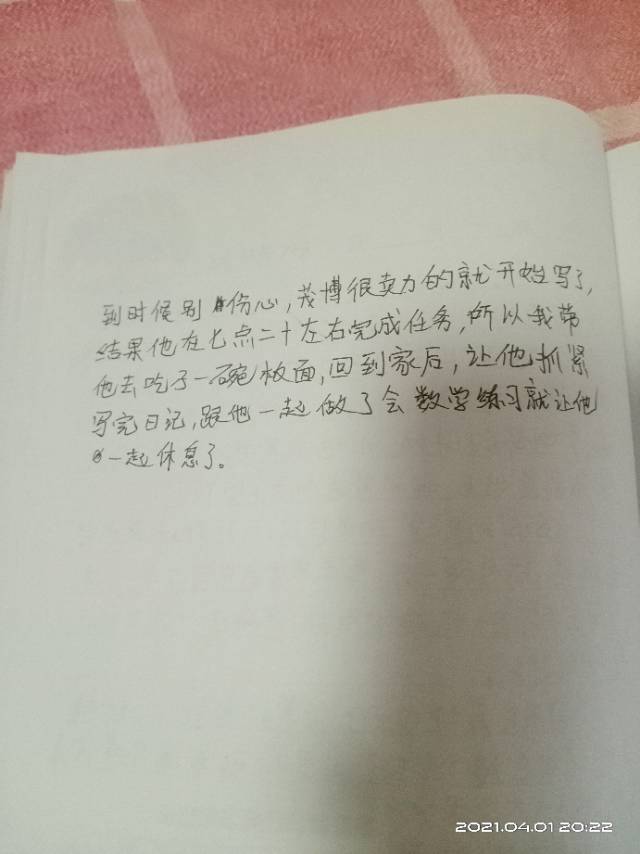 到时候别伤心,茂博很卖力的就开始写了,
结果他在七点二十左右完成任务,所以我带
他去吃了一碗板面,回到家后,让他抓紧
写完日记,跟他一起做了会数学练习就让他
一起休息了。
2021.04.01 20:22